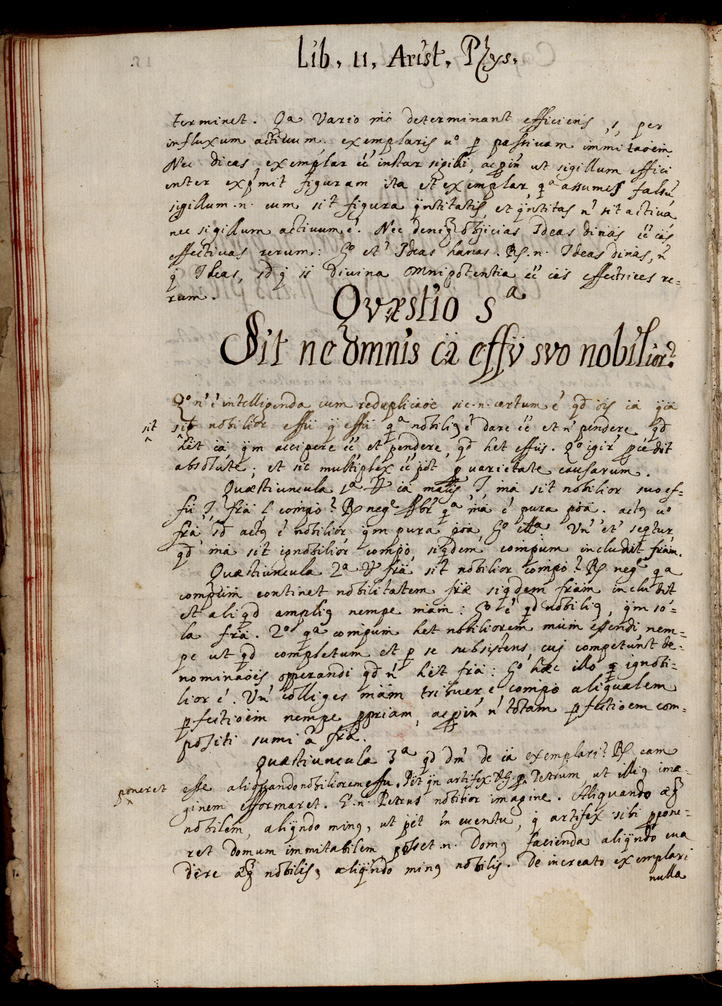 Lib. 11. Arist. Phys.
terminet. Qa Vario mō determinant efficiens, per
influxum activum exemplaris uº p̱ passivam immitaōēm
Nec dicas exemplar ēē instar sigilli, ac ut sigillum effici
enter exp̄mit figuram ita et exemplar qª assumis falsū
sigillum .n. cum sit figura q̄ntitatis, et q̄ntitas n' sit activa
nec sigillum activum ē. Nec deniq̧ obijcias Ideas divas ēē cās
effectivas rerum: gº et' Ideas hanas. R̨ .n. Ideas divas, n'
q̱ Ideas, sd q̱ ij divina omnipotentia ēē cās effectrices re=
rum.
Qvæstio 5ª
Sit ne omnis cā effū svo nobilior?
Qº n' ē intelligenda cum reduplicaōē sic .n. certum ē qd ōīs cā q̄ā
sit
sit nobilior effū q̱ effū qª nobilig ē dare ēē et n' pendere qd
hēt cā q̄m accipere ēē et pendere, qd het effūs. Qº igir pcedit
absolutē, et sic multiplex ēē pōt p̱ varietate causarum.
Quæstiuncula 1ª. cā mālis ma sit nobilior suo ef=
fū fra compo? R̨ neg qª ma ē pura poa. actq uº
fra, sd actq ē nobilior q̄m pura poa, gº Un' et' seqtur
qd ma sit ignobilior compo, siqdem compum includit fram.
Quæstiuncula 2ª fra sit nobilior compo? R̨ neg qª
compum continet nobilitatem fræ siqdem fram includit
et aliqd amplig nempe mam: qd nobilig, q̄m so=
la fra. 2º qª compum het nobiliorem mūm essendi nem=
pe ut qd completum et p̱ se subsistens cui competunt de=
nominaōēs operandi qd n' hēt fra: gº hæc illo ignobi=
lior ē. Un' colliges mam tribuere compo aliqualem
p̱fectioem nempe ppriam, n' totam p̱fectioem com=
positi sumi a fra.
Quæstiuncula 3ª qd de cā exemplari? R̨ eam
poneret
esse aliquando nobiliorem effū. Petrum, ut illig ima=
ginem efformaret. E.n. Petrus nobilior imagine. Aliquando æq
nobilem, aliq̄ndo ming, ut pet in eventu, q̱ artifex sibi ppone=
ret domum immitabilem posset .n. Domq facienda aliq̄ndo eva
dere æq nobilis, aliq̄ndo ming nobilis. De increato exemplari
nulla